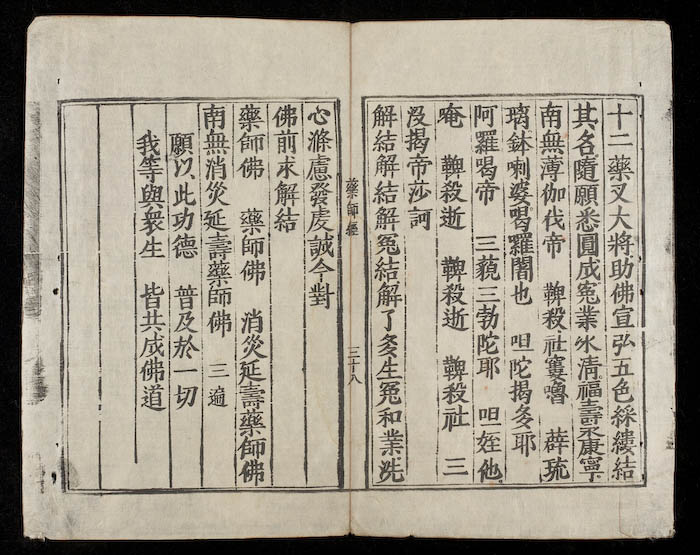 十二藥叉大將助佛宣弘五色綵縷結
其名隨願悉圓成冤業氷清福壽永康寧
南無薄伽伐帝 鞞殺社窶嚕 薜琉
璃鉢喇婆喝羅闍也 呾陀揭多耶
阿羅喝帝 三藐三勃陀耶 呾姪他
唵 鞞殺逝 鞞殺逝 鞞殺社 三
沒揭帝莎訶
解結解結解冤結解了多生冤和業洗
藥師經
三十八
心滌慮發虔誠今對
佛前求解結
藥師佛 藥師佛 消災延壽藥師佛
南無消災延壽藥師佛 三遍
願以此功德 普及於一切
我等與衆生 皆共成佛道